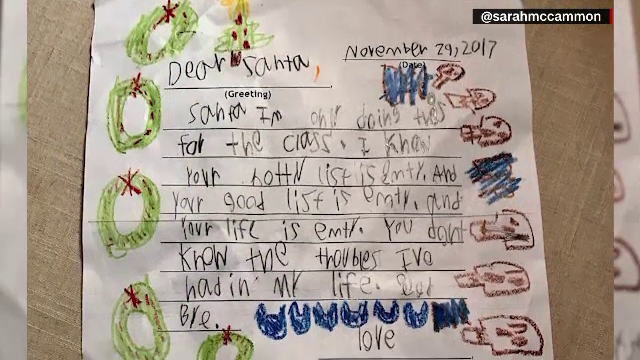 @sarahmccammon
November 29, 2017
(Date)
Dear Santa,
(Greeting)
Santa I'm only doing this
for the class. I know
your notty list is emty. And
your good list is emty. And
your life is emty. You dont
know the troubles I've
had in my life. Good
Bye.
love